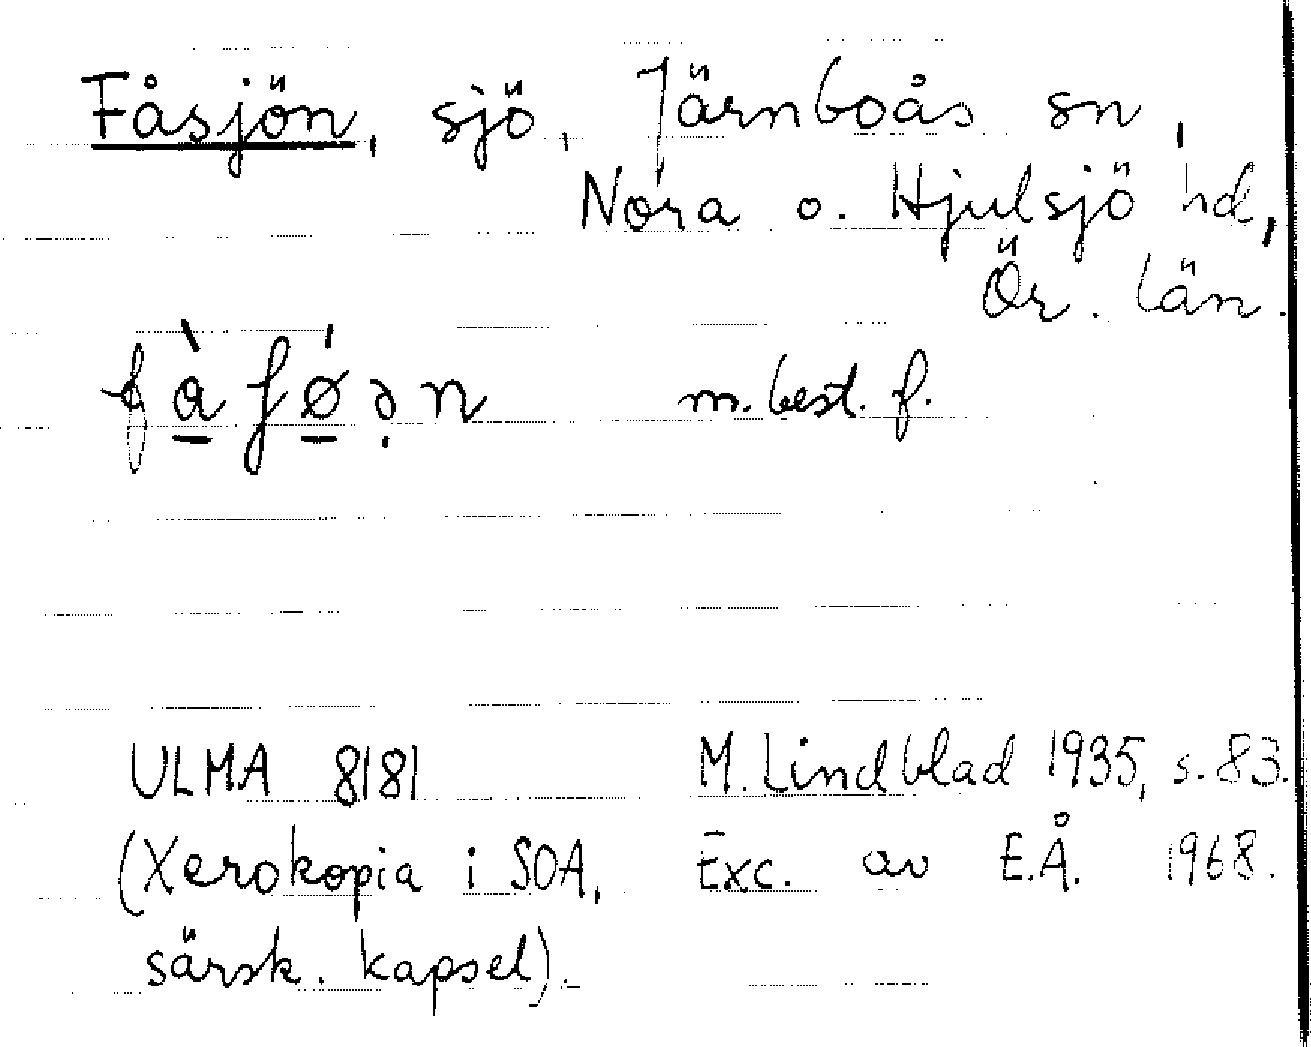 Fåsjön, sjö, Järnboås sn,
Nora o. Hjulsjö hd,
Ör. län.
m. best. f.
ULMA 8181 M. Lindblad 1935, s. 83.
(Xerokopia i SOA, Exc. av E.Å. 1968.
särsk. kapsel).